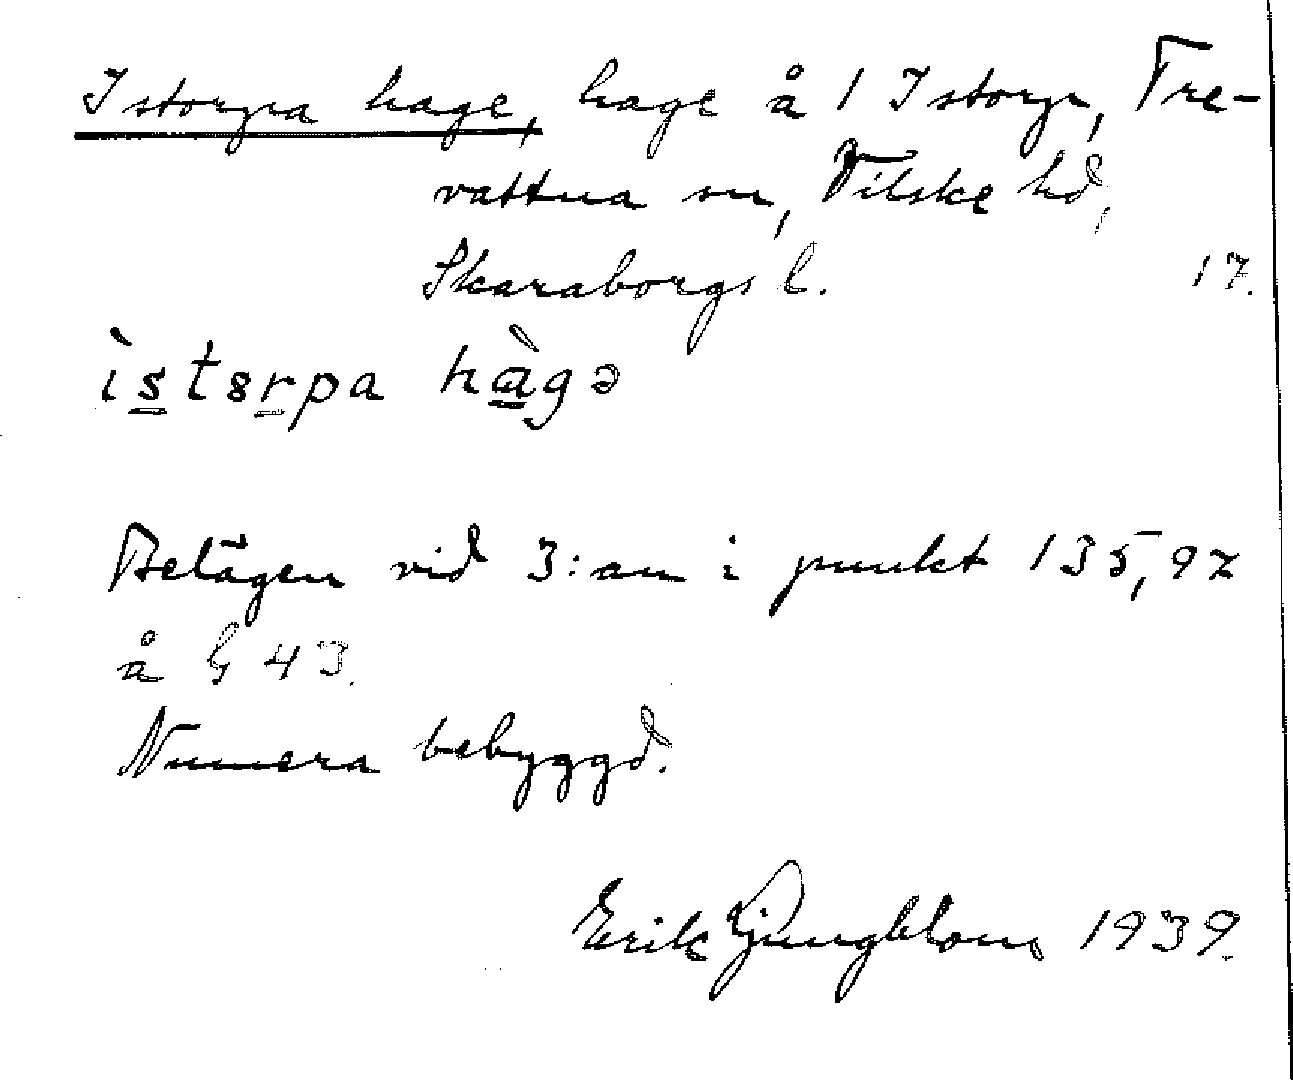 Istorpa hage, hage å 1 Istorp, Tre-
vattna sn, Vilske hd,
Skaraborgs l. 17.
ìst8rpa hàgə
Belägen vid 3:an i punkt 135,97
å § 43.
Numera bebyggd.
Erik Ljungblom 1939.